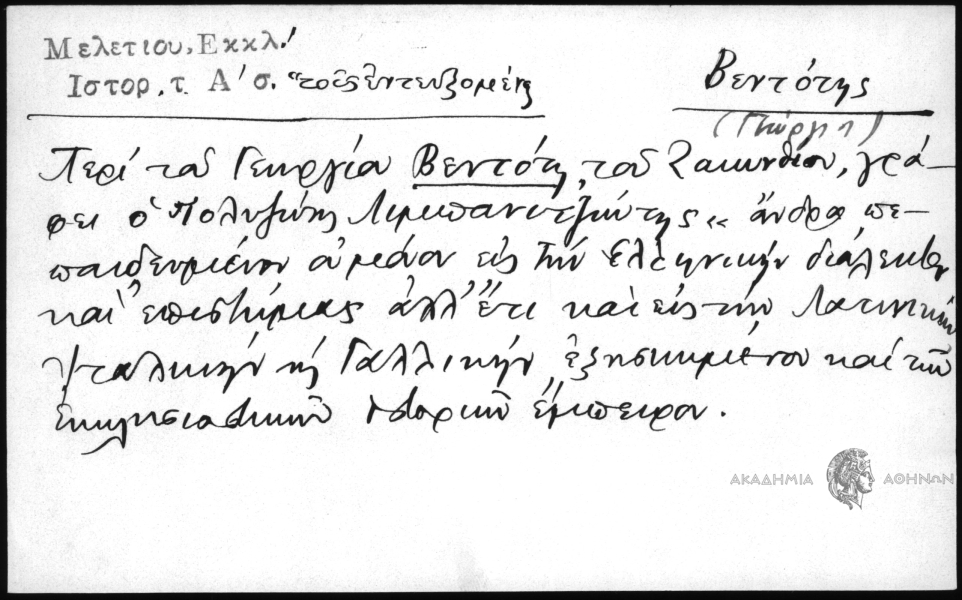 Μελετίου, Εκκλ.
Ιστορ, τ. Α' σ. "τοῖς ἐντευξομένοις
Βεντότης
(Γεώργιος)
Περί τοῦ Γεωργίου Βεντότη, τοῦ Ζακυνθίου, γρά-
φει ὁ Πολυζώης Λαμπανιτζιώτης « ἄνδρα πε-
παιδευμένον οὐ μόνον εἰς τήν Ἑλληνικήν διάλεκτον
καί ἐπιστήμας ἀλλ' ἔτι καί εἰς τήν Λατινικήν
Ἰταλικήν ἤ Γαλλικήν, ἐξησκημένον καί τῶν
ἐκκλησιαστικῶν ἱστορικῶν ἔμπειρον.
ΑΚΑΔΗΜΙΑ ΑΘΗΝΩΝ